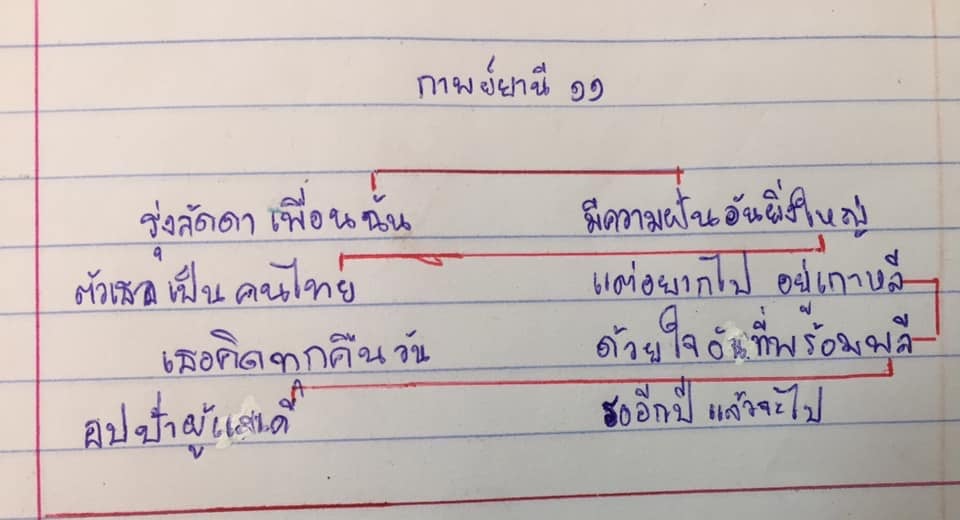 กาพย์ยานี ๑๑
รุ่งลัดดา เพื่อนฉัน มีความฝันอันยิ่งใหญ่
ตัวเธอ เป็น คนไทย แต่อยากไป อยู่เกาหลี
เธอคิดทุกคืนวัน ด้วยใจอันที่พร้อมพลี
อปป้าผู้แสนดี รออีกปี แล้วจะไป